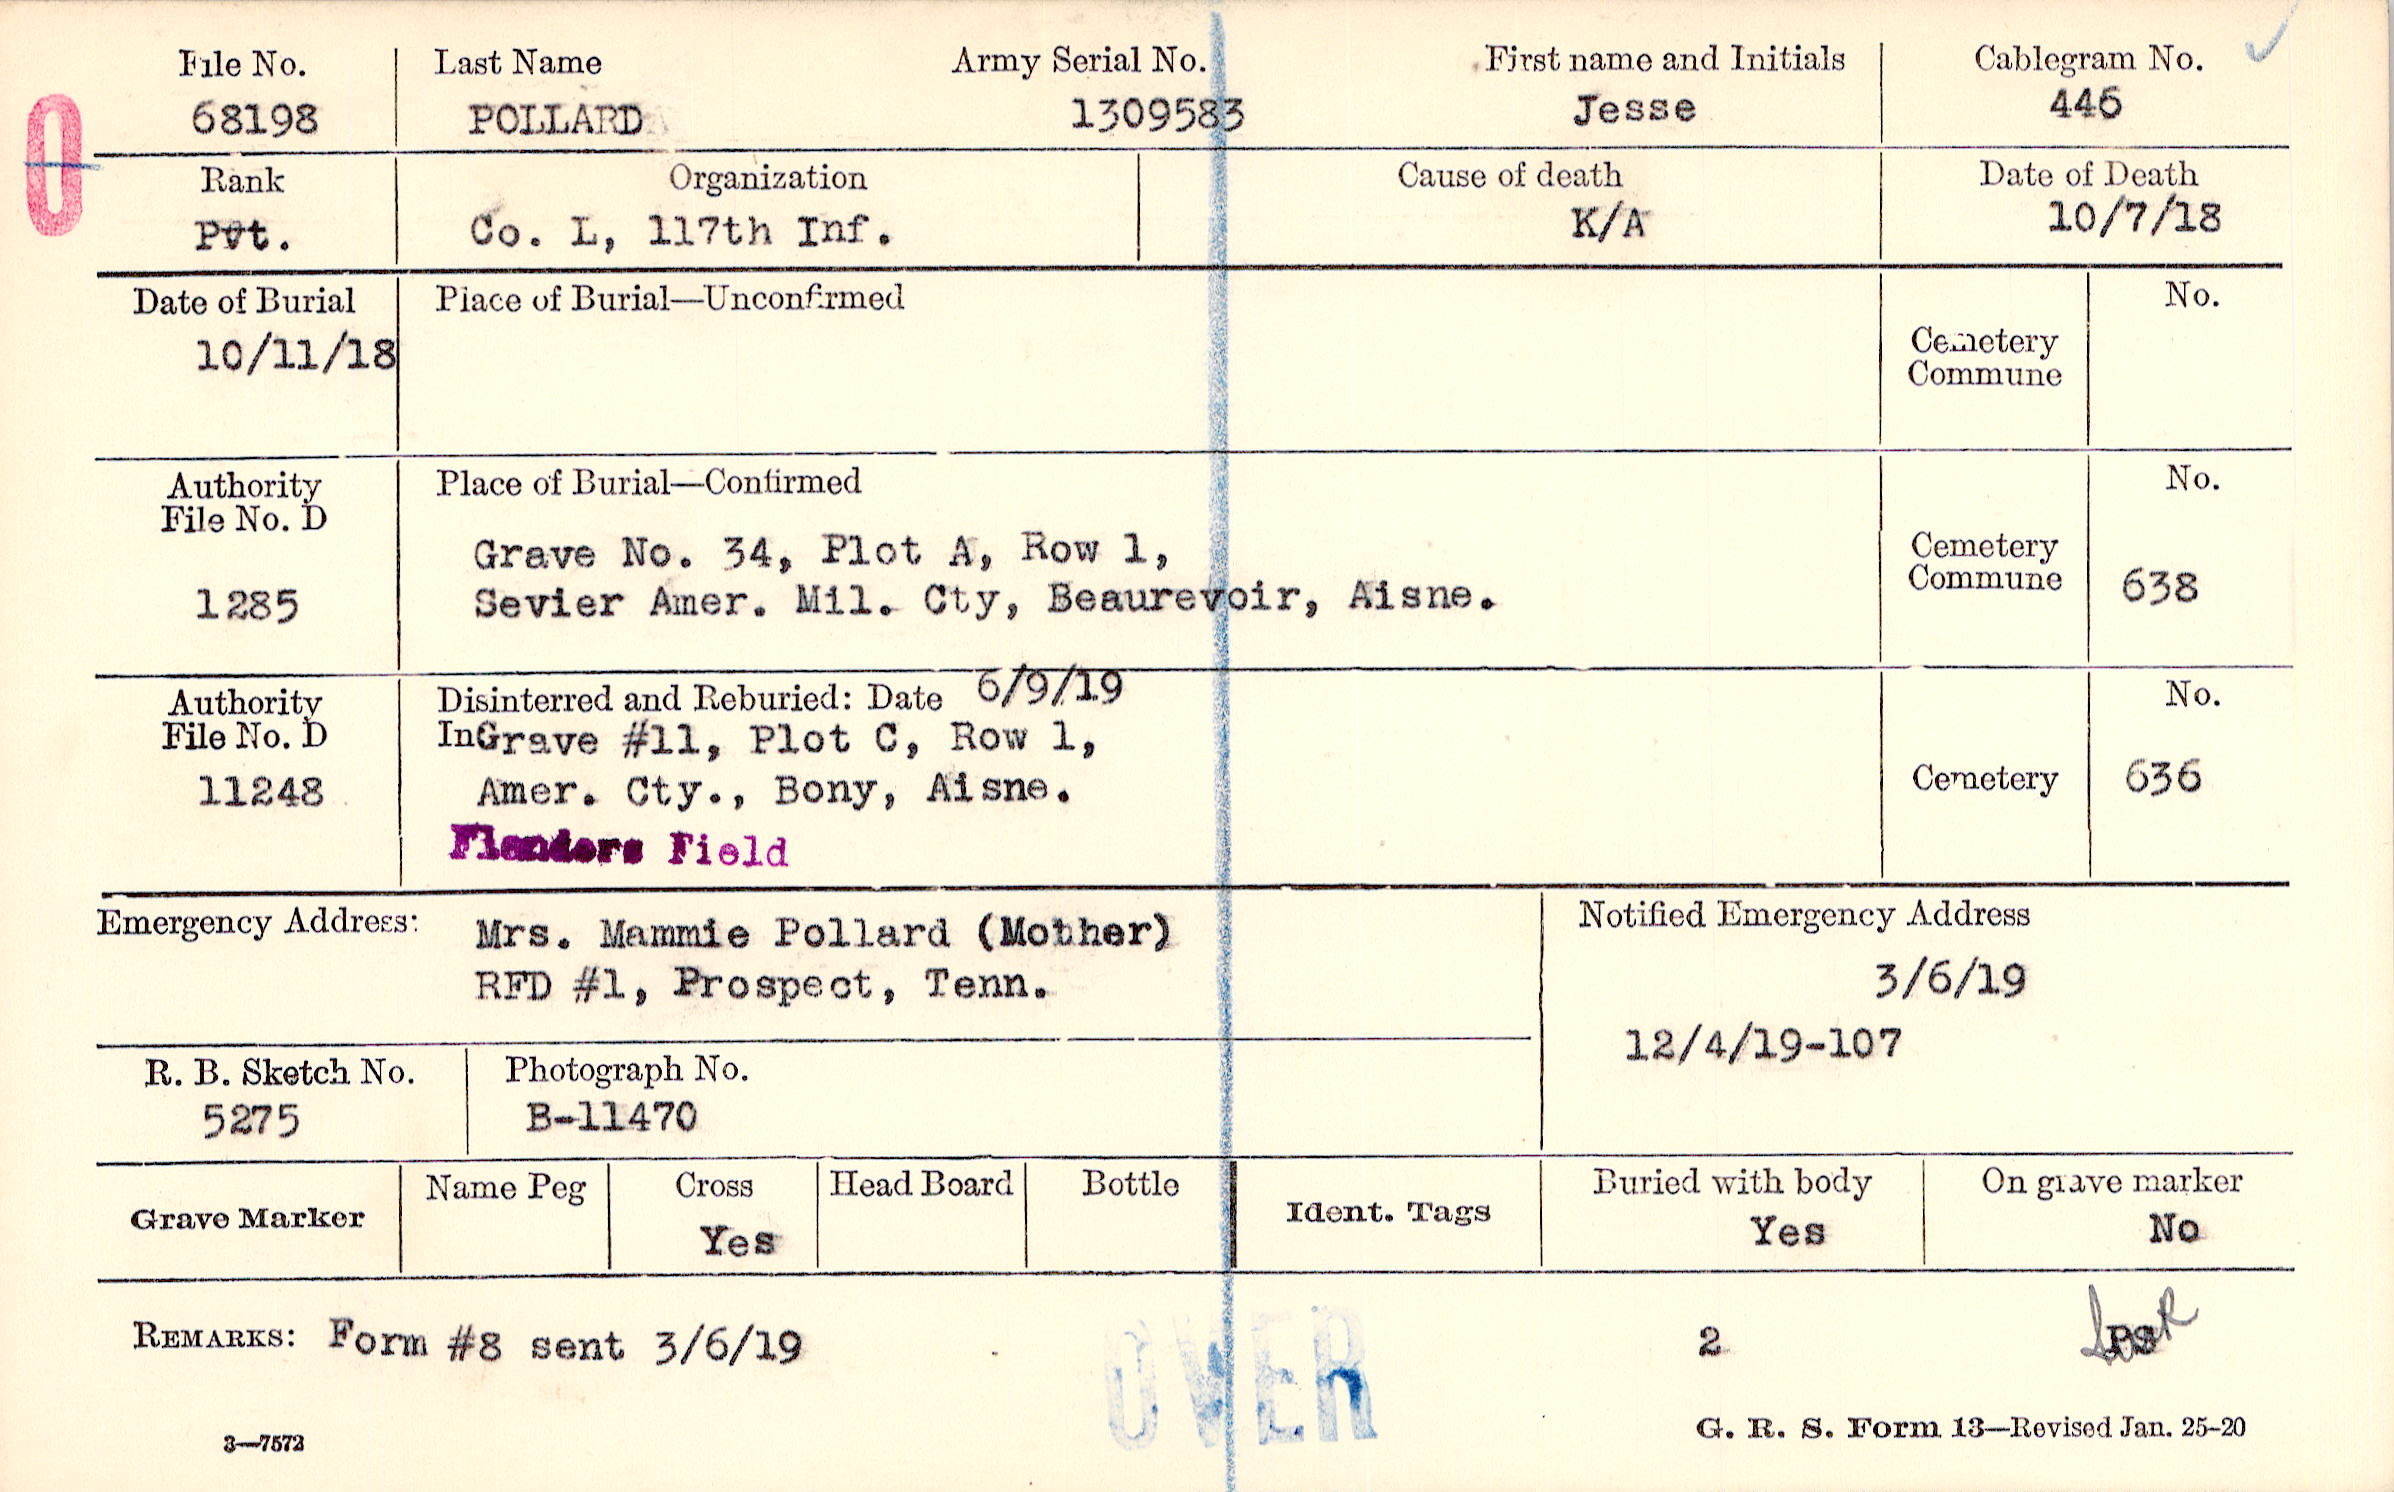 File No. Last Name Army Serial No. First name and Initials Cablegram No.
68198 POLLARD 1309583 Jesse 446
O
Rank Organization Cause of death Date of Death
Pvt. Co. L, 117th Inf. K/A 10/7/18
Date of Burial Place of Burial—Unconfirmed No.
10/11/18
Cemetery
Commune
Authority Place of Burial—Confirmed No.
File No. D
Grave No. 34, Plot A, Row 1, Cemetery
Commune 638
1285 Sevier Amer. Mil. Cty, Beaurevoir, Aisne.
Authority Disinterred and Reburied: Date 6/9/19 No.
File No. D InGrave #11, Plot C, Row 1,
11248 Amer. Cty., Bony, Aisne. Cemetery 636
Flanders Field
Emergency Address: Mrs. Mammie Pollard (Mother) Notified Emergency Address
RFD #1, Prospect, Tenn. 3/6/19
12/4/19-107
R. B. Sketch No. Photograph No.
5275 B-11470
Grave Marker Name Peg Cross Head Board Bottle Ident. Tags Buried with body On grave marker
Yes Yes No
REMARKS: Form #8 sent 3/6/19 2 PS
OVER
3—7572 G. R. S. Form 13—Revised Jan. 25-20